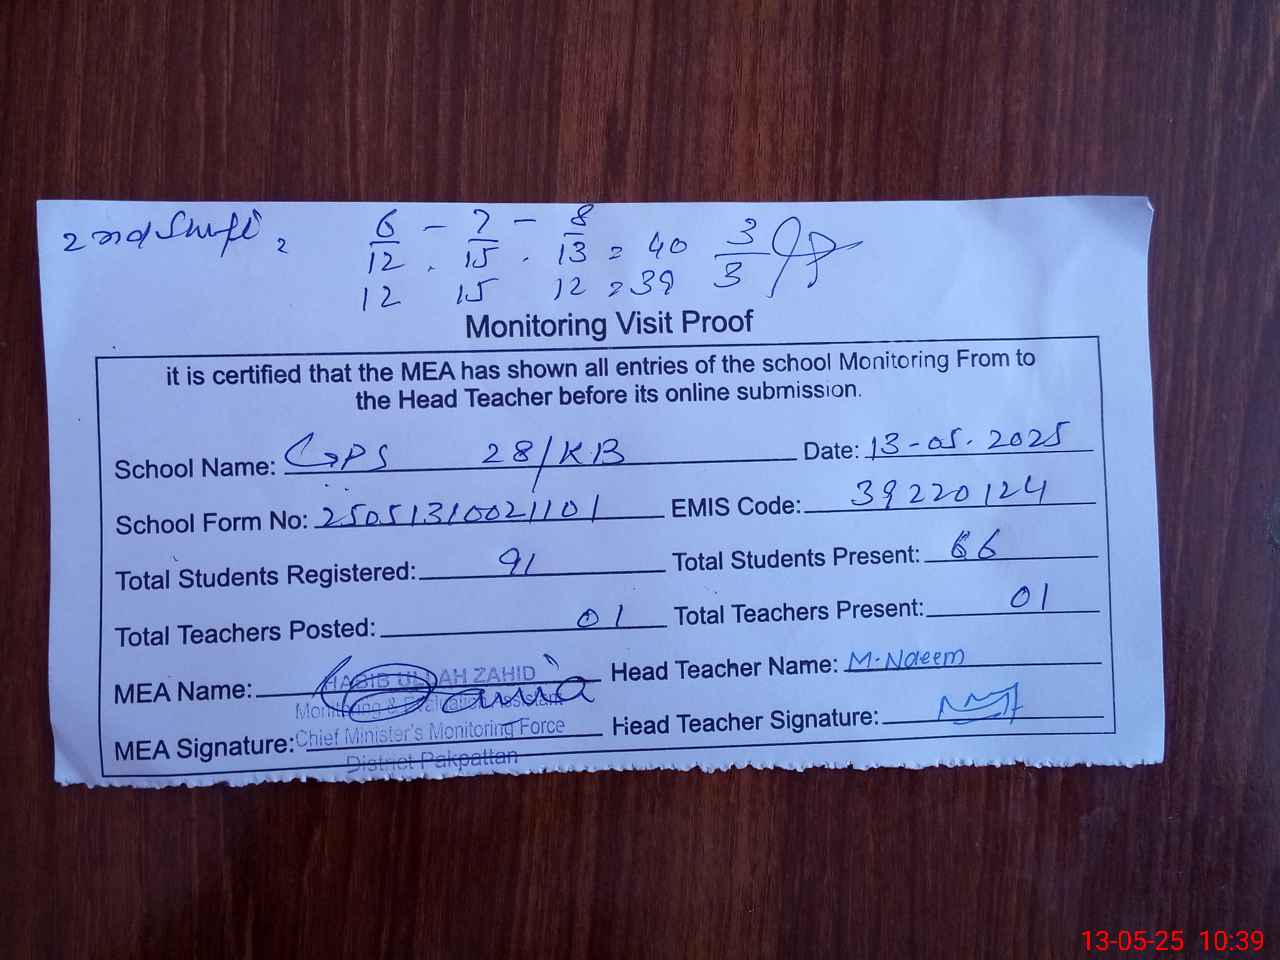 2nd Shift = 6 - 7 - 8
12 . 15 . 13 = 40 3/3
12 15 12 = 39
Monitoring Visit Proof
it is certified that the MEA has shown all entries of the school Monitoring From to
the Head Teacher before its online submission.
School Name: GPS 28/KB Date: 13-05-2025
School Form No: 25051310021101 EMIS Code: 39220124
Total Students Registered: 91 Total Students Present: 66
Total Teachers Posted: 01 Total Teachers Present: 01
MEA Name: HABIB ULLAH ZAHID Head Teacher Name: M. Naeem
Monitoring & Evaluation Assistant
MEA Signature: Chief Minister's Monitoring Force Head Teacher Signature:
District Pakpattan
13-05-25 10:39